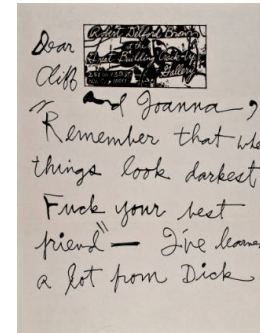 Dear
Cliff
Robert Delford Brown
at the
Great Building Crack-Up
Gallery
and Joanna,
"Remember that whe
things look darkest
Fuck your best
friend" — I've learne
a lot from Dick